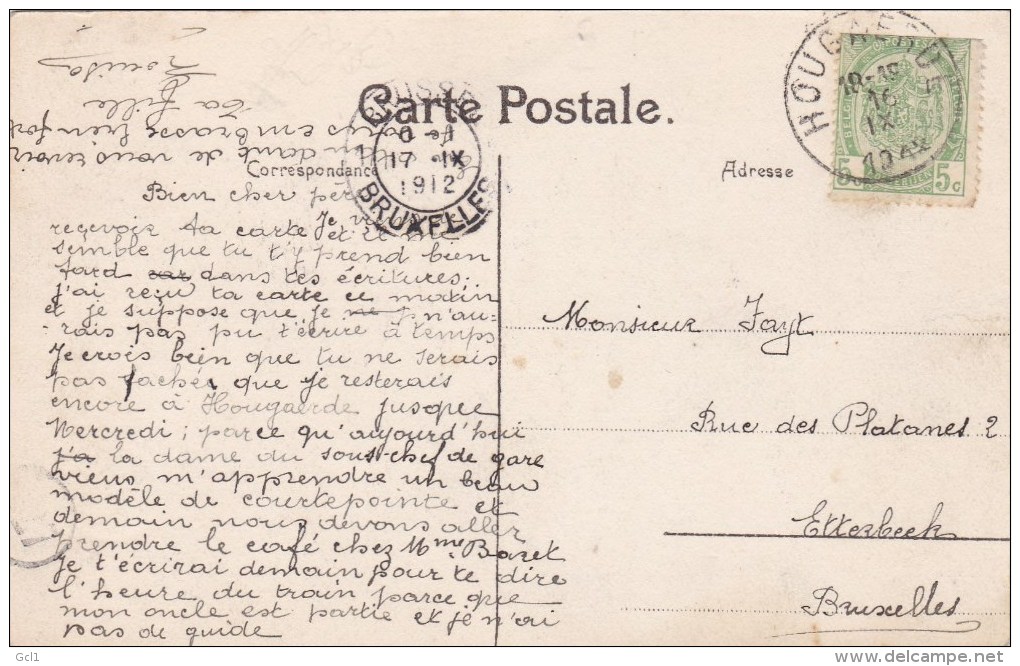 Carte Postale.
Correspondance
Adresse
Bien cher père
Je viens de
recevoir ta carte et il me
semble que tu t'y prend bien
tard dans tes écritures;
j'ai reçu ta carte ce matin
et je suppose que je n'au-
rais pas pu t'écrire à temps
Je crois bein que tu ne serais
pas faché que je resterais
encore à Hougaerde jusque
Mercredi; parce qu'aujourd'hui
j'a la dame du sous-chef de gare
viens m'apprendre un beau
modèle de courtepointe et
demain nous devons aller
prendre le café chez Mme Baret
Je t'écrirai demain pour te dire
l'heure du train parce que
mon oncle est partie et je n'ai
pas de guide
En attendant de vous revoir
je vous embrasse bien fort
Ta fille
Louisa
Monsieur Fayt
Rue des Platanes 2
Etterbeek
Bruxelles
17 IX
1912
BRUXELLES
HOUGAERDE
18-19
16
IX
POSTES
5 c
Gcl1
delcampe.net